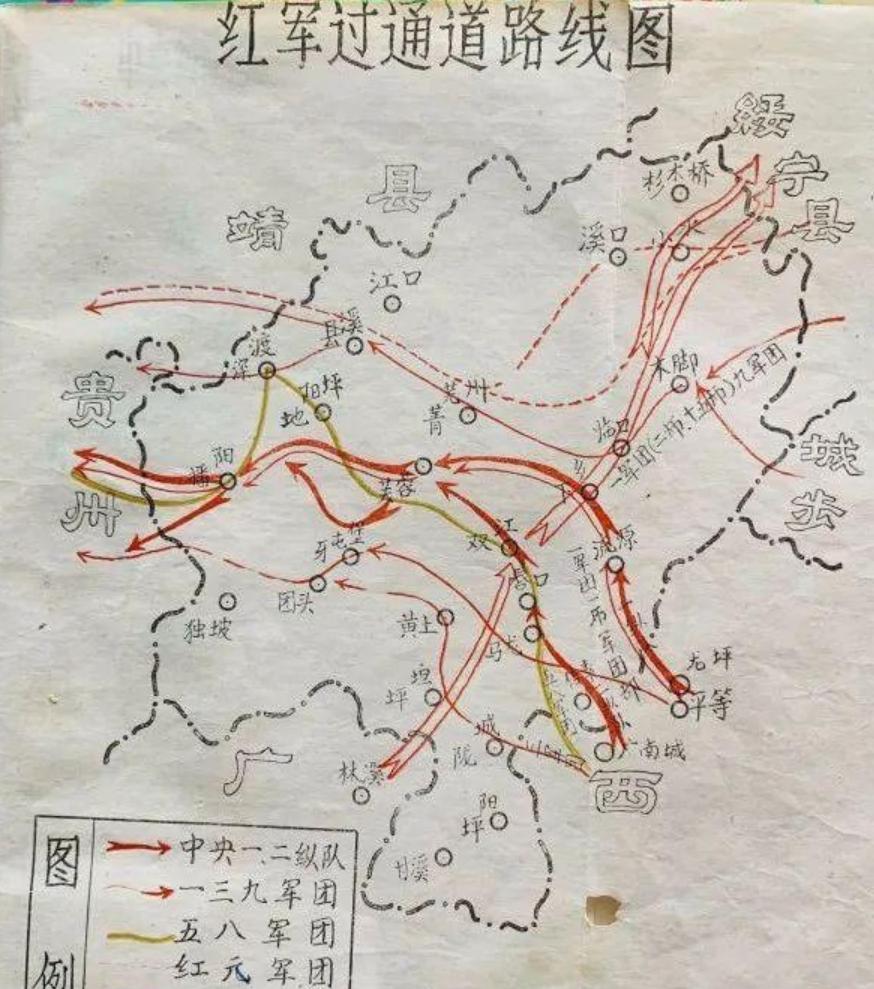 红军过通道路线图
绥宁县
靖县
杉木桥
溪口
江口
县溪
渡
深
木脚
阳坪
地
芜州
菁
贵州
临口
一军团(二师.十五师)九军团
城步
阳
播
芙蓉
双江
流源
牙屯堡
团头
独坡
黄土
马龙
坪坦
龙坪
平等
陇城
南城
林溪
广西
阳
坪
甘溪
图例
中央一、二纵队
一三九军团
五八军团
红元军团